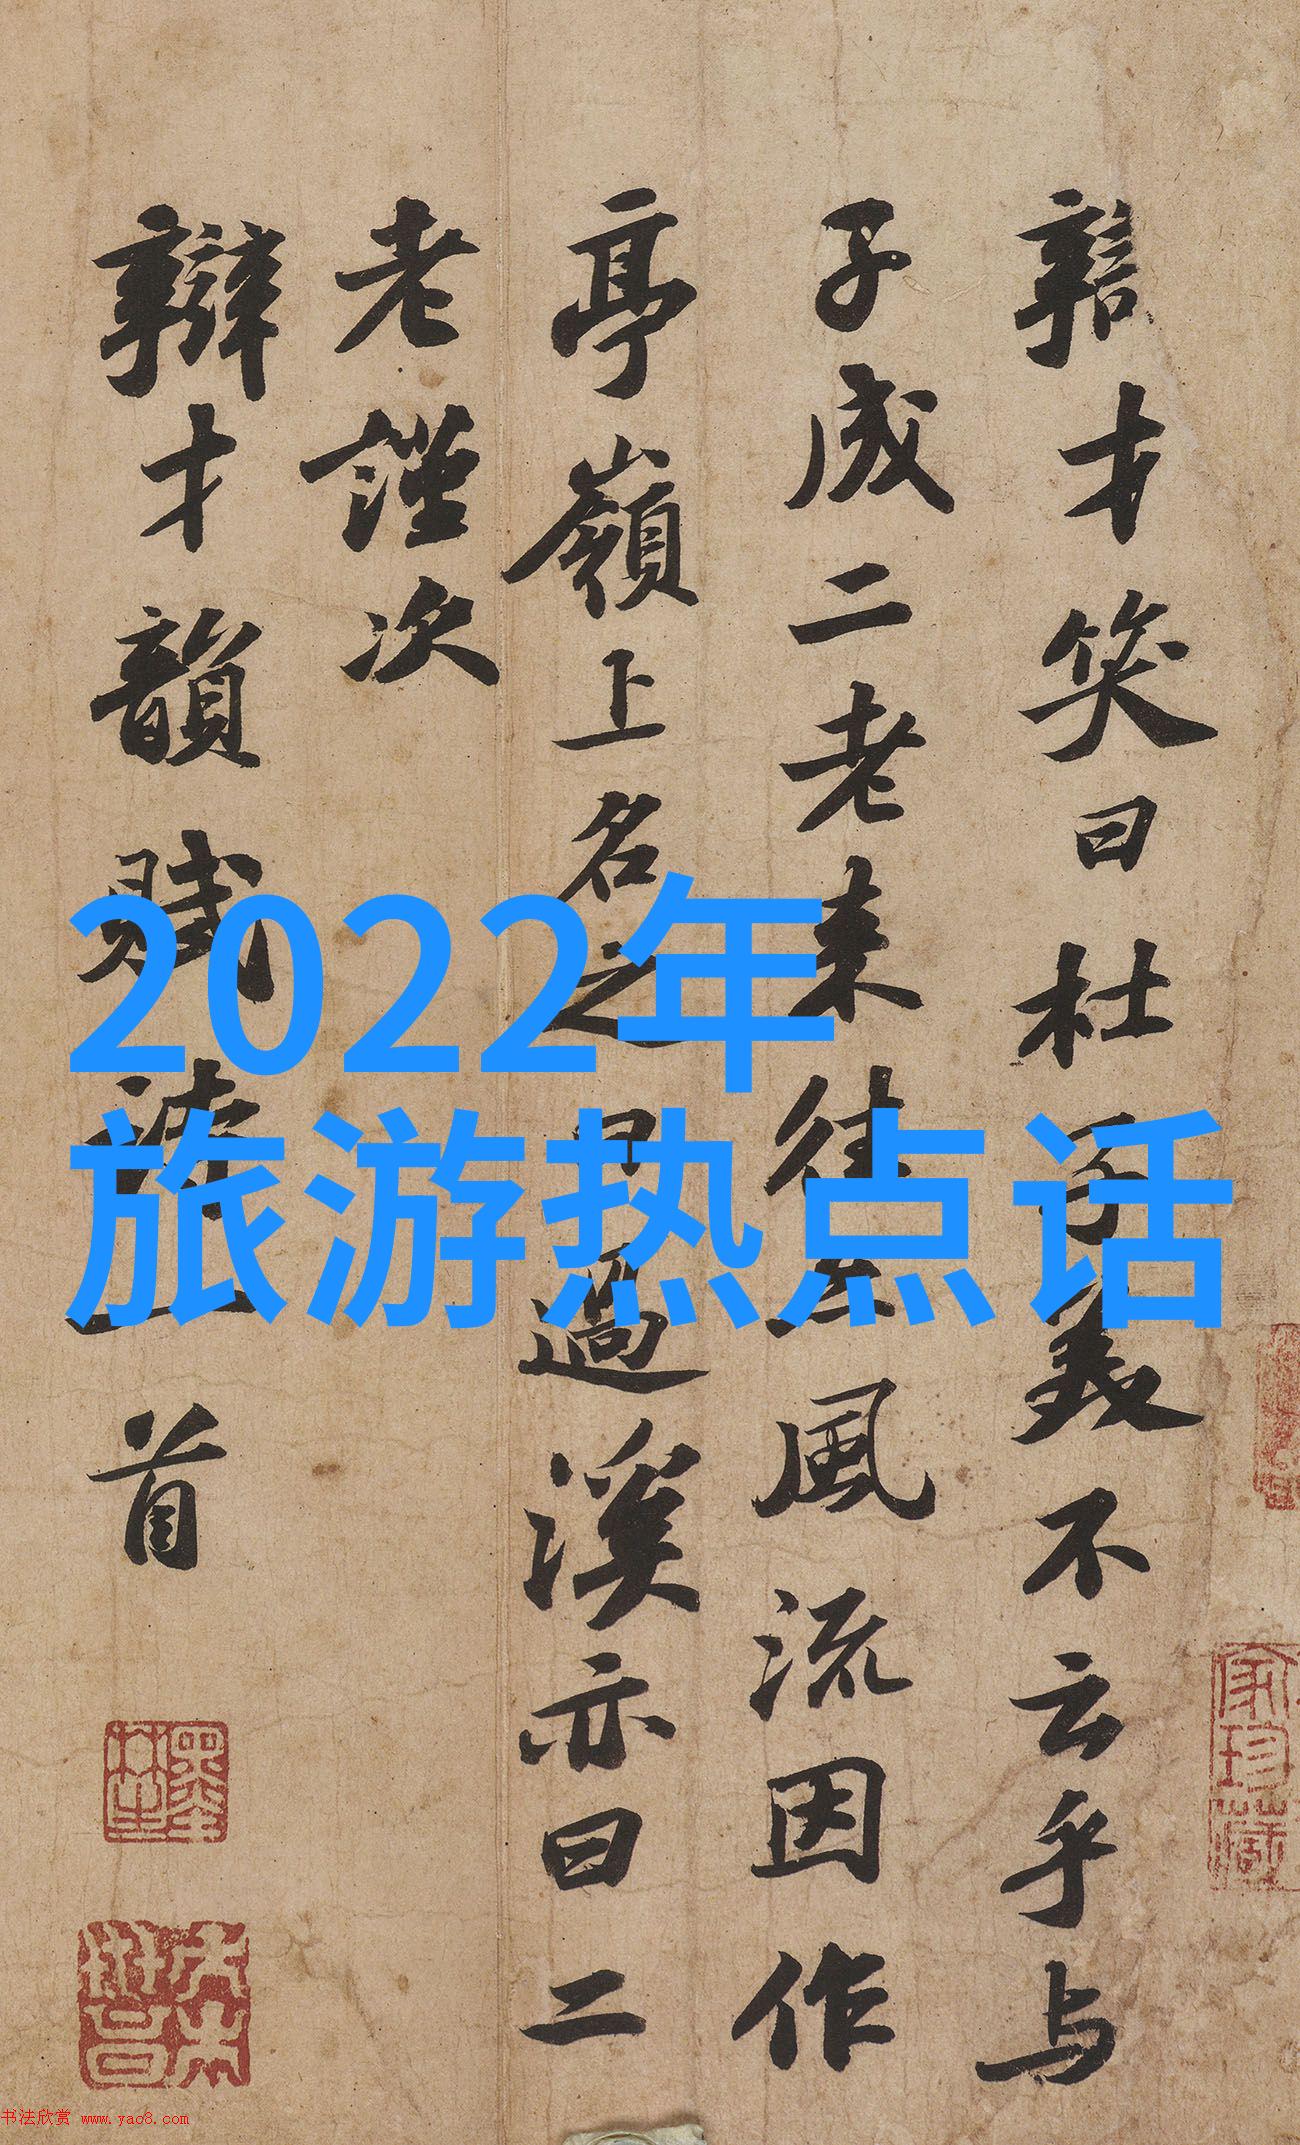 辯才笑曰杜子美不云乎与
子成二老来往亦風流因作
亭嶺上名之曰過溪亦曰二
老謹次
辯才韻賦詩一首
2022年
旅游热点话
家珍藏
书法欣赏 www.yac8.com